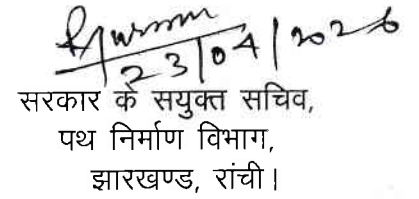 23/04/2026
सरकार के सयुक्त सचिव,
पथ निर्माण विभाग,
झारखण्ड, रांची।